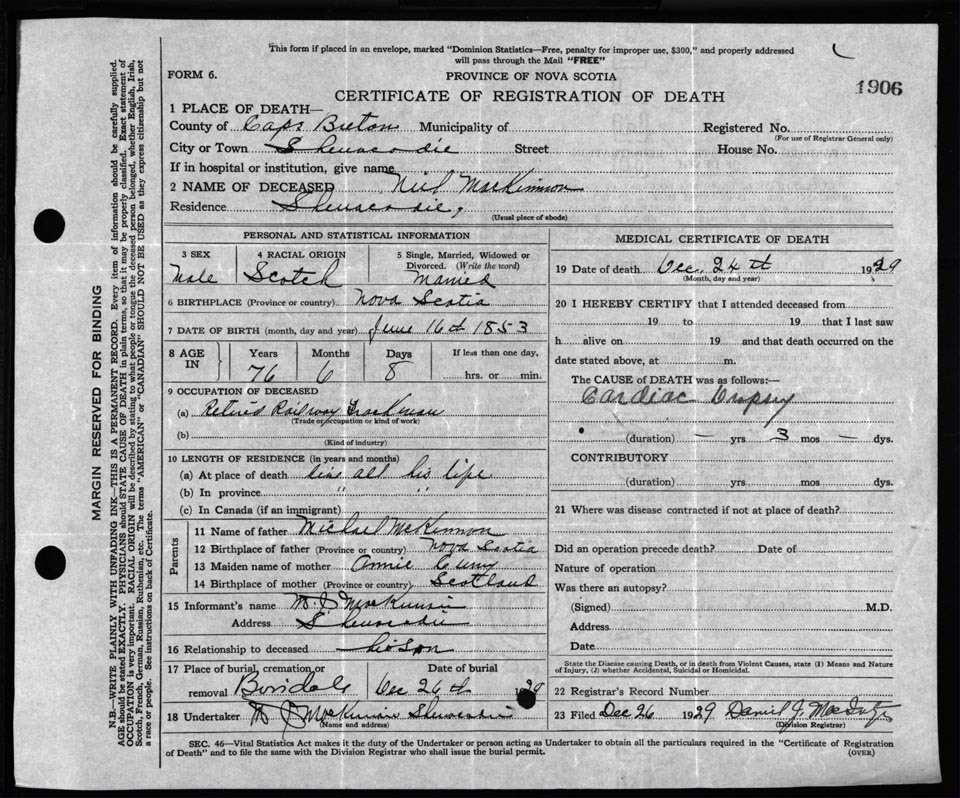 This form if placed in an envelope, marked "Dominion Statistics—Free, penalty for improper use, $300," and properly addressed
will pass through the Mail "FREE"
FORM 6.
PROVINCE OF NOVA SCOTIA
CERTIFICATE OF REGISTRATION OF DEATH
1906
1 PLACE OF DEATH—
County of Cape Breton Municipality of Registered No.
(For use of Registrar General only)
City or Town Shenacadie Street House No.
If in hospital or institution, give name
2 NAME OF DECEASED Neil MacKinnon
Residence Shenacadie,
(Usual place of abode)
PERSONAL AND STATISTICAL INFORMATION
3 SEX
Male
4 RACIAL ORIGIN
Scotch
5 Single, Married, Widowed or
Divorced. (Write the word)
Married
6 BIRTHPLACE (Province or country) Nova Scotia
7 DATE OF BIRTH (month, day and year) June 16th 1853
8 AGE
IN
Years
76
Months
6
Days
8
If less than one day,
hrs. or min.
9 OCCUPATION OF DECEASED
(a) Retired Railway Trackman
(Trade or occupation or kind of work)
(b)
(Kind of industry)
10 LENGTH OF RESIDENCE (in years and months)
(a) At place of death all his life
(b) In province " "
(c) In Canada (if an immigrant)
Parents
11 Name of father Michael McKinnon
12 Birthplace of father (Province or country) Nova Scotia
13 Maiden name of mother Annie
14 Birthplace of mother (Province or country) Scotland
15 Informant's name MacKinnon
Address Shenacadie
16 Relationship to deceased his Son
17 Place of burial, cremation or
removal
Date of burial
Dec 26th 1929
18 Undertaker MacKinnon Shenacadie
(Name and address)
MEDICAL CERTIFICATE OF DEATH
19 Date of death Dec. 24th 1929
(Month, day and year)
20 I HEREBY CERTIFY that I attended deceased from
19 to 19 that I last saw
h alive on 19 and that death occurred on the
date stated above, at m.
The CAUSE of DEATH was as follows:—
Cardiac Dropsy
(duration) — yrs 3 mos — dys.
CONTRIBUTORY
(duration) yrs. mos. dys.
21 Where was disease contracted if not at place of death?
Did an operation precede death? Date of
Nature of operation
Was there an autopsy?
(Signed) M.D.
Address
Date
State the Disease causing Death, or in death from Violent Causes, state (1) Means and Nature
of Injury, (2) whether Accidental, Suicidal or Homicidal.
22 Registrar's Record Number
23 Filed Dec 26 1929 Daniel J.
(Division Registrar)
SEC. 46—Vital Statistics Act makes it the duty of the Undertaker or person acting as Undertaker to obtain all the particulars required in the "Certificate of Registration
of Death" and to file the same with the Division Registrar who shall issue the burial permit.
(OVER)
MARGIN RESERVED FOR BINDING
N.B.—WRITE PLAINLY WITH UNFADING INK—THIS IS A PERMANENT RECORD. Every item of information should be carefully supplied.
AGE should be stated EXACTLY. PHYSICIANS should STATE CAUSE OF DEATH in plain terms, so that it may be properly classified. Exact statement of
OCCUPATION is very important. RACIAL ORIGIN will be described by stating to what people or tongue the deceased person belonged, whether English, Irish,
Scotch, French, German, Russian, Ruthenian, etc. The terms "AMERICAN" or "CANADIAN" SHOULD NOT BE USED as they express citizenship but not
a race or people. See instructions on back of Certificate.